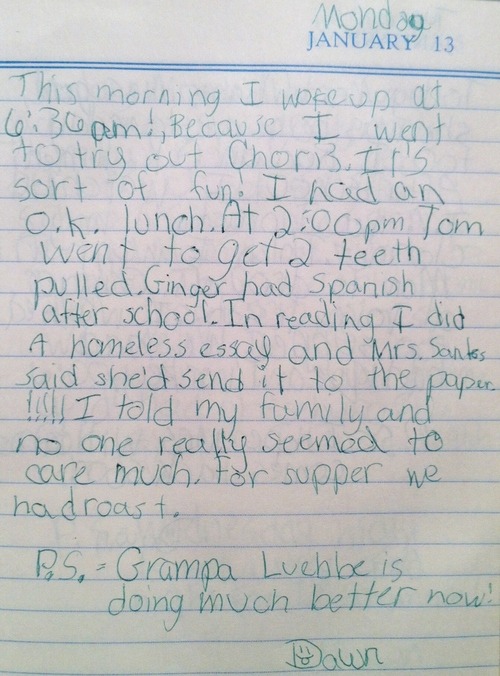 Monday
JANUARY 13
This morning I woke up at
6:30 am!, Because I went
to try out Choris. It's
sort of fun! I had an
o.k. lunch. At 2:00pm Tom
went to get 2 teeth
pulled. Ginger had Spanish
after school. In reading I did
A homeless essay and Mrs. Santos
said she'd send it to the paper
!!!!! I told my family and
no one really seemed to
care much. For supper we
had roast.
P.S. = Grampa Luebbe is
doing much better now!
Dawn